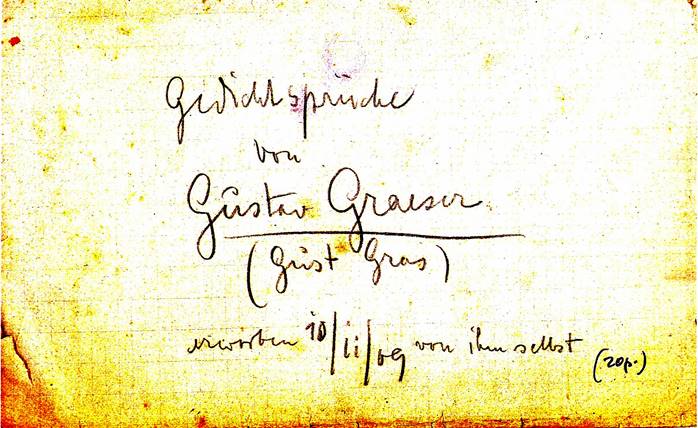 Gedichtsprüche
von
Gustav Graeser
(Gust Gras)
erworben 10/ii/09 von ihm selbst (20p.)